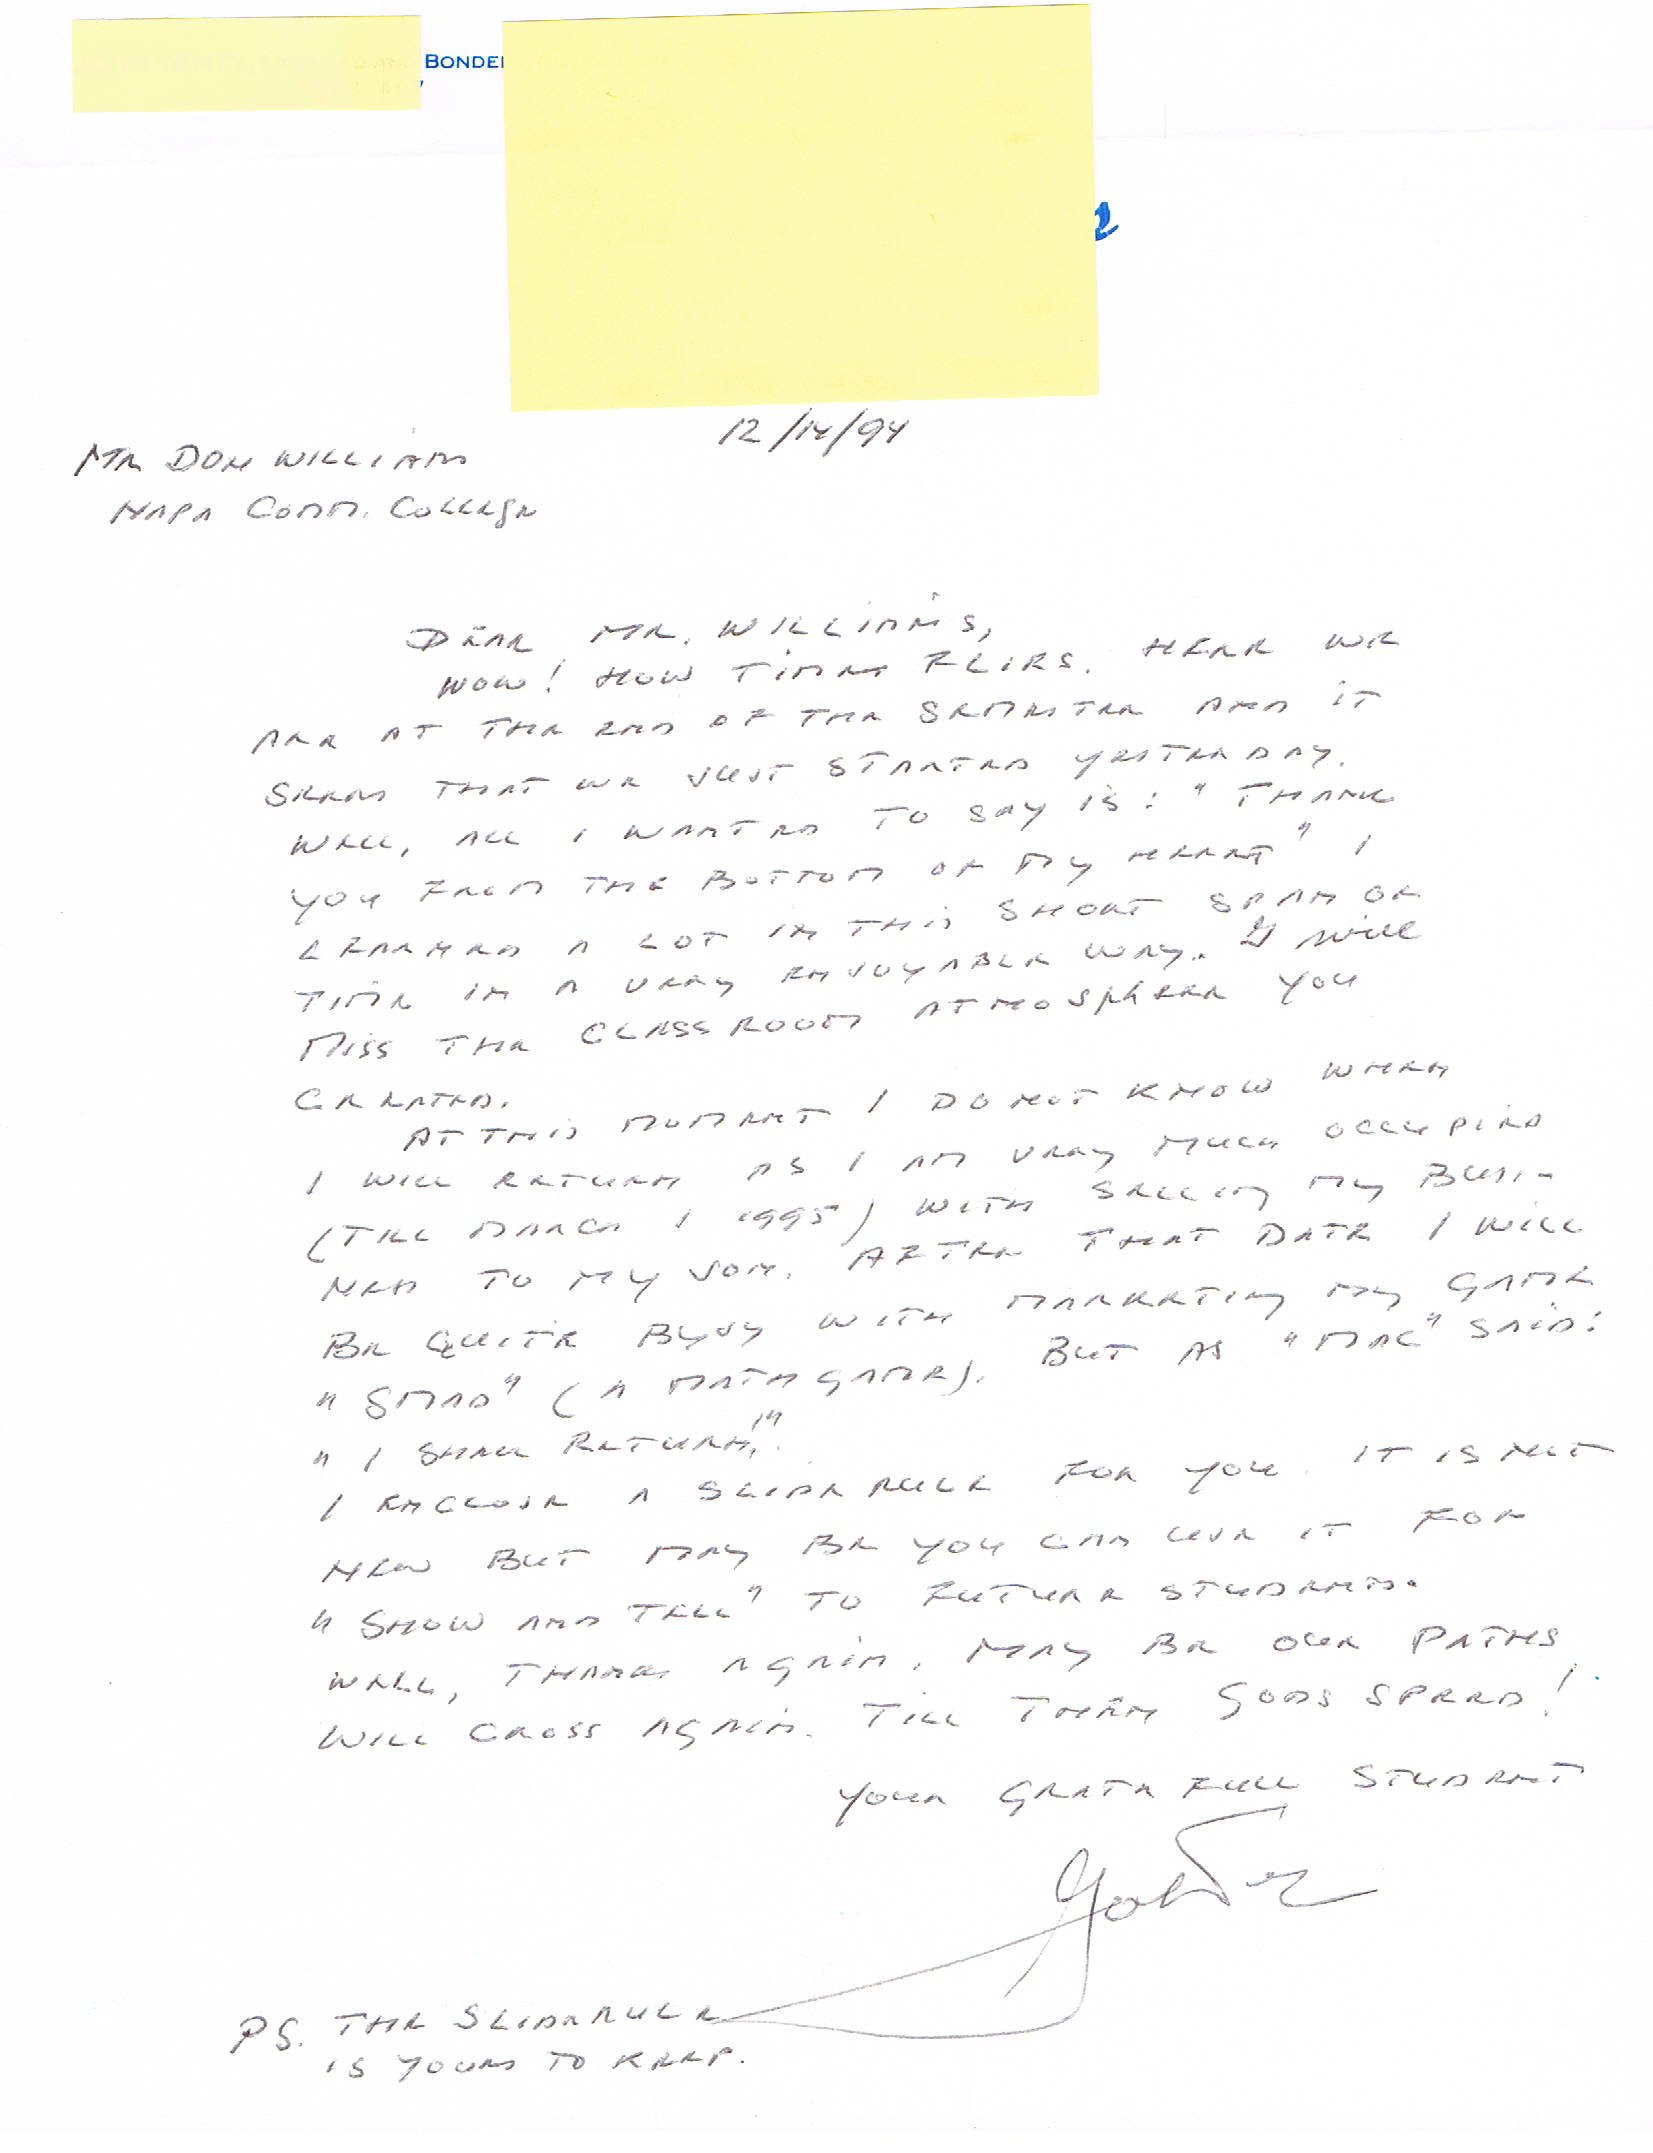 BONDE
12/14/94
MR DON WILLIAMS
NAPA COMM. COLLEGE
DEAR MR. WILLIAMS,
WOW! HOW TIME FLIES. HERE WE
ARE AT THE END OF THE SEMESTER AND IT
SEEMS THAT WE JUST STARTED YESTERDAY.
WELL, ALL I WANTED TO SAY IS: "THANK
YOU FROM THE BOTTOM OF MY HEART" I
LEARNED A LOT IN THIS SHORT SPAN OF
TIME IN A VERY ENJOYABLE WAY. I will
MISS THE CLASSROOM ATMOSPHERE YOU
CREATED.
AT THIS MOMENT I DO NOT KNOW WHEN
I WILL RETURN AS I AM VERY MUCH OCCUPIED
(TILL MARCH 1 1995) WITH SELLING MY BUSI-
NESS TO MY SON. AFTER THAT DATE I WILL
BE QUITE BUSY WITH MARKETING MY GAME
"SMAD" (A MATH GAME). BUT AS "MAC" SAID:
"I SHALL RETURN!".
I ENCLOSE A SLIDE RULE FOR YOU. IT IS NOT
NEW BUT MAY BE YOU CAN USE IT FOR
"SHOW AND TELL" TO FUTURE STUDENTS.
WELL, THANKS AGAIN. MAY BE OUR PATHS
WILL CROSS AGAIN. TILL THEN GODS SPEED!
YOUR GRATEFULL STUDENT
PS. THE SLIDERULE
IS YOURS TO KEEP.